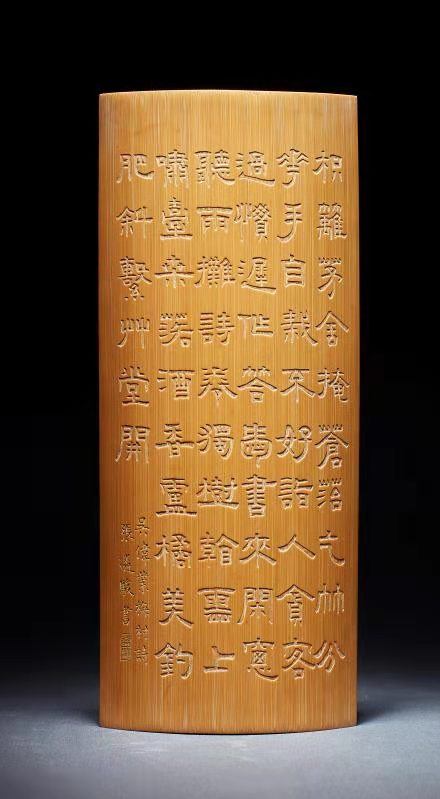 枳籬茅舍掩蒼苔乞竹分
花手自栽不好詣人貪客
過慣遲作答愛書來閑窗
聽雨攤詩卷獨樹看雲上
嘯臺桑落酒香盧橘美釣
船斜繫艸堂開
吳偉業梅村詩
張書